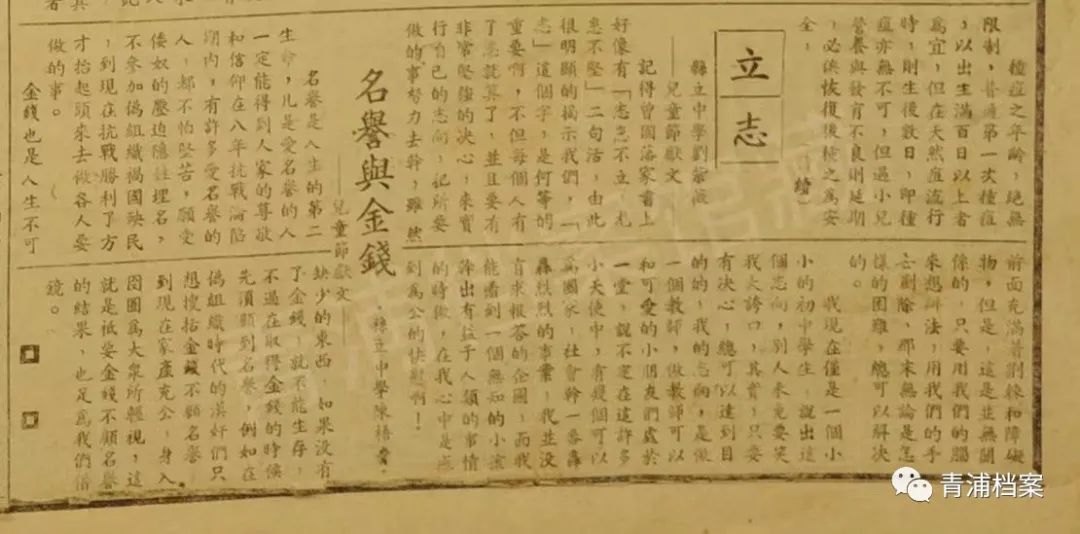 種痘之年齡，絕無
限制，普通第一次種痘
，以出生滿百日以上者
為宜，但在天然痘流行
時，則生後數日，即種
痘亦無不可，但過小兒
營養與發育不良則延期
，必俟恢復後種之為安
全，（續）
立志
縣立中學劉紫薇
——兒童節獻文
記得曾國落家書上
好像有「志怎不立，尤
患不堅」二句活，由此
很明顯的揭示我們，「
志」這個字，是何等的
重要啊，不但每個人有
了志就算了，並且要有
非常堅強的決心，來實
行自己的志向，記所要
做的事努力去幹，雖然
前面充滿着荆棘和障礙
物，但是，這是並無關
係的，只要用我們的腦
來想辦法，用我們的手
去剷除，那末無論是怎
樣的困難，總可以解決
的。
我現在僅是一個小
小的初中學生，說出這
個志向，別人未免要笑
我太誇口，其實，只要
有決心，總可以達到目
的的，我的志向，是做
一個教師，做教師可以
和可愛的小朋友們處於
一堂，說不定在這許多
小天使中，有幾個可以
為國家，社會幹一番轟
轟烈烈的事業，我並沒
有求報答的企圖，而我
能看到一個無知的小孩
幹出有益于人類的事情
的時候，在我心中是
到為公的快慰啊！
名譽與金錢
——兒童節獻文——
縣立中學陳梧秀
名譽是人生的第二
生命，凡是愛名譽的人
一定能得到人家的尊敬
和信仰在八年抗戰淪陷
期內，有許多愛名譽的
人，都不怕堅苦，願受
倭奴的壓迫隱姓埋名，
不參加偽組織禍國殃民
，到現在抗戰勝利了方
才抬起頭來去做各人要
做的事。
金錢也是人生不可
缺少的東西，如果沒有
了金錢，就不能生存，
不過在取得金錢的時候
先須顧到名譽，例如在
偽組織時代的漢奸們只
想搜括金錢不顧名譽
到現在家產充公，身入
囹圄為大衆所輕視，這
就是祗要金錢不顧名譽
的結果，也足為我們借
鏡。
青浦档案